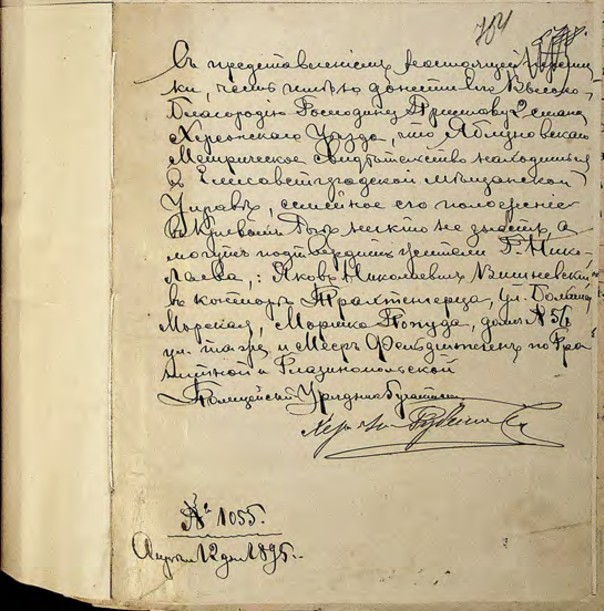 Съ представленіемъ настоящей перепис
ки, честь имѣю донести Его Высоко-
благородію Господину Приставу 2 стана
Херсонскаго Уѣзда, что Яблуновскаго
Метрическое свидѣтельство находится
въ Елисаветградской мѣщанской
Управѣ, семейное его положеніе
въ никто не знаетъ, а
могутъ подтвердить жители г. Нико-
лаева,: Яковъ Николаевич Вишневскій
въ конторѣ Трахтенгерца, ул. Большая
Морская, Мошко домъ № 56
ул. и Мееръ по Гра
нитной и
Полицейскій Урядникъ
№ 1055.
Апрѣля 12 дня 1895 г.